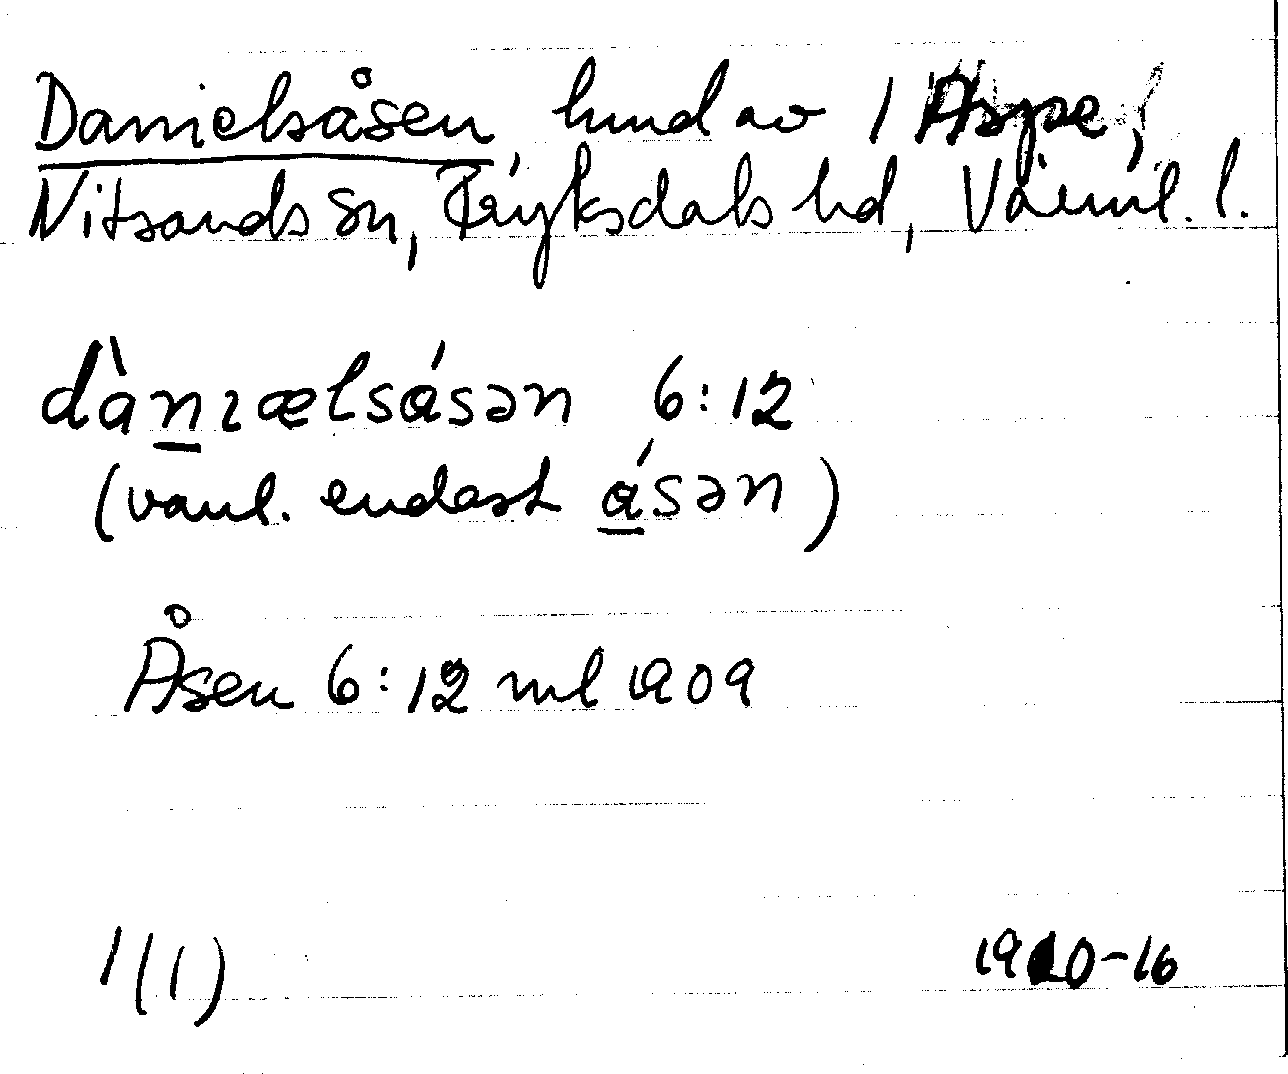 Danielsåsen, hmd av 1 Aspe,
Nitsands sn, Fryksdals hd, Värml. l.
dànɪælsåsən 6:12
(vanl. endast åsən)
Åsen 6:12 ml 1909
1(1)
1910-16